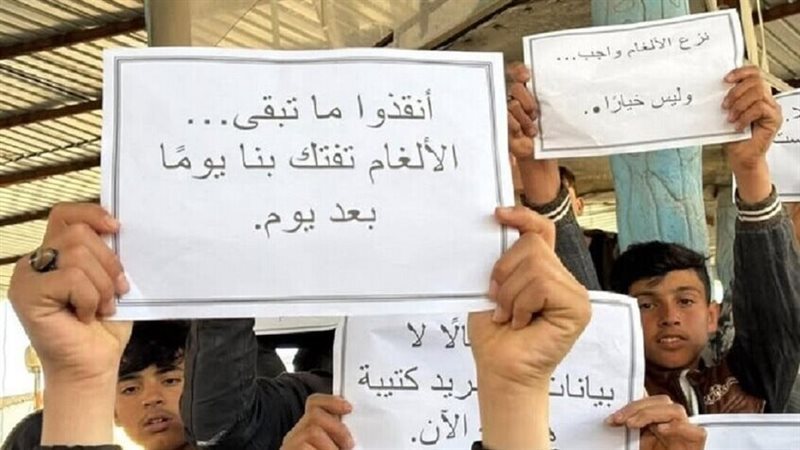 أنقذوا ما تبقى...
الألغام تفتك بنا يومًا
بعد يوم.
نزع الألغام واجب...
وليس خيارًا.
لا
كتيبة
الآن.